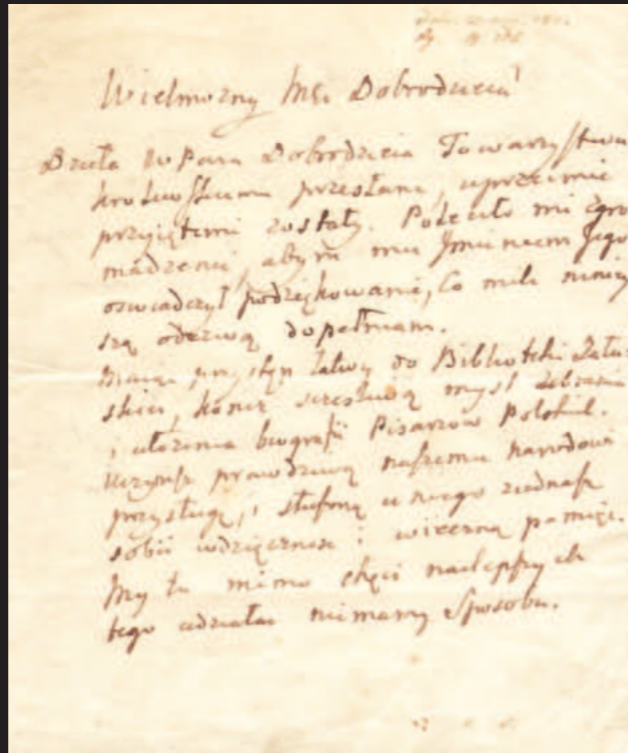 Wielmożny Mci Dobrodzieiu!
Dzieła WPana Dobrodzieia Towarzystwu
krakowskiemu przesłane, uprzeimie
przyiętemi zostały. Poleciło mi Zgro
madzenie, abym mu Imieniem Jego
oswiadczył podziękowanie, Co mile niniey
szą odezwą dopełniam.
przystęp łatwy do Biblioteki Załus
skiey, szczęśliwą mysl zebrania
i ułożenia biografii Pisarzow Polskich.
prawdziwą naszemu narodowi
przysługę, i słuszną u niego ziednasz
sobie wdzięcznosc i wieczną pamięc.
My tu mimo chęci naylepszych
tego udziałac nimamy Sposobu.